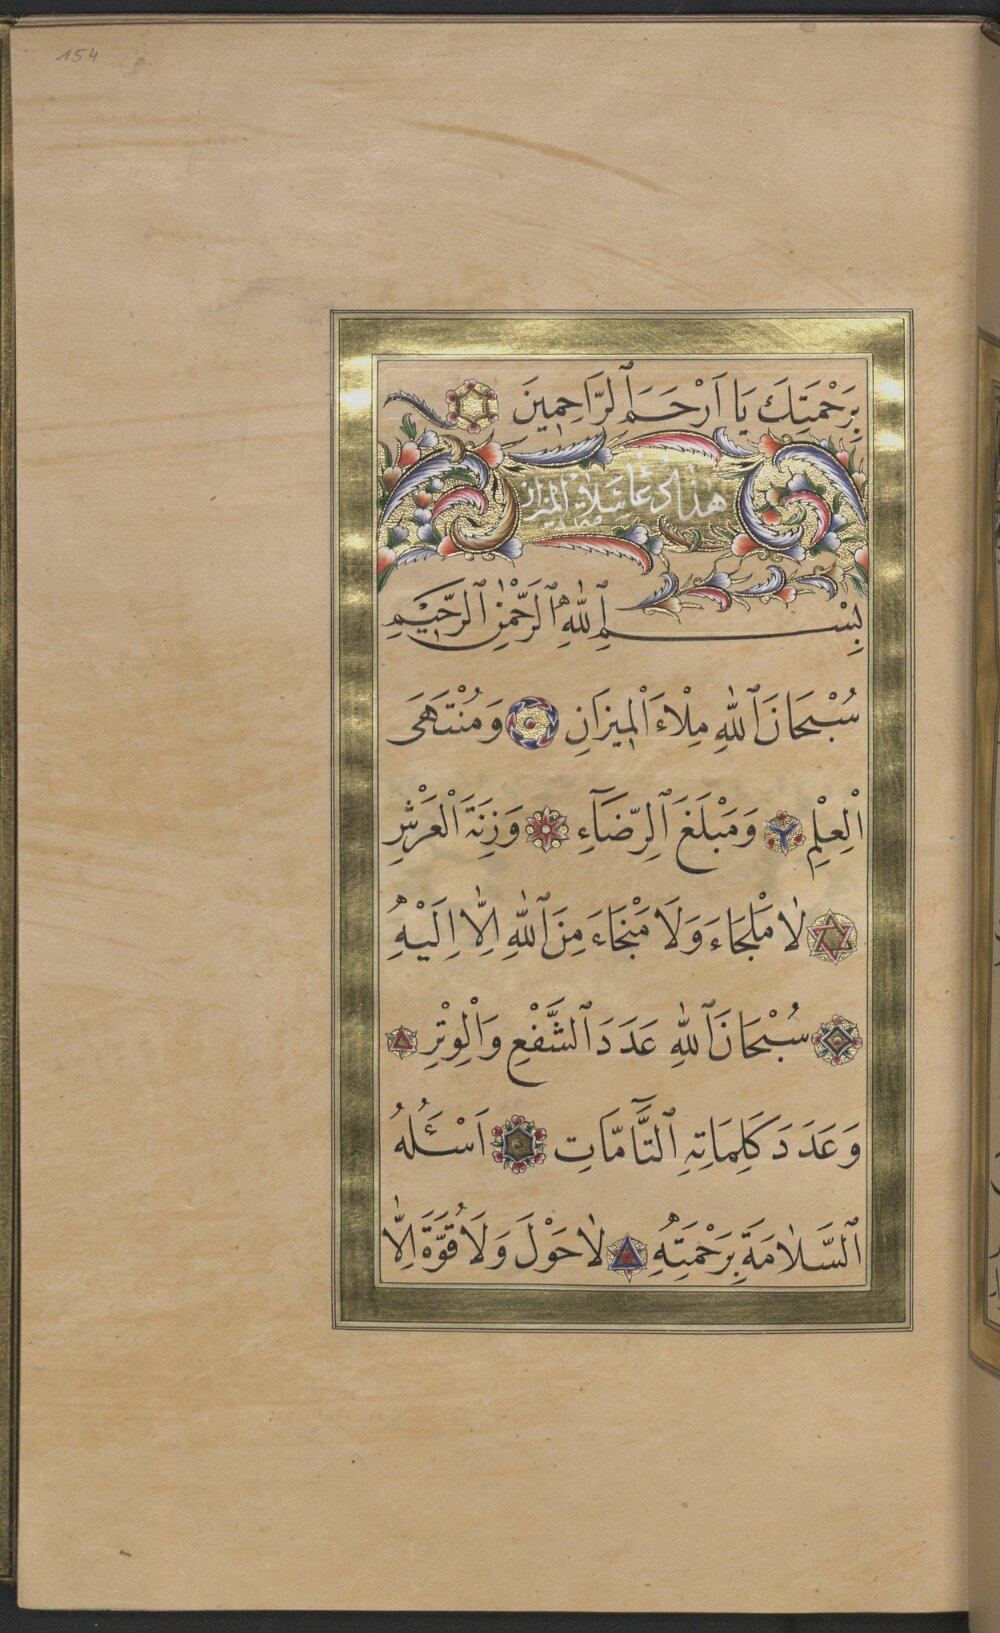 154
بِرَحْمَتِكَ يَا اَرْحَمَ ٱلرَّاحِمِينَ
هذا دعا ملاء الميزان
بِسْمِ ٱللّٰهِ ٱلرَّحْمٰنِ ٱلرَّحِيْمِ
سُبْحَانَ ٱللّٰهِ مِلْاءَ ٱلْمِيزَانِ وَمُنْتَهَى
اْلعِلْمِ وَمَبْلَغَ ٱلرِّضَآءِ وَزِنَةَ اْلعَرْشِ
لٰا مَلْجَاءَ وَلَا مَنْجَاءَ مِنَ ٱللّٰهِ اِلّٰا اِلَيْهِ
سُبْحَانَ ٱللّٰهِ عَدَدَ ٱلشَّفْعِ وَاْلوِتْرِ
وَعَدَدَ كَلِمَاتِهِ ٱلتَّآمَّاتِ اَسْئَلُهُ
ٱلسَّلٰامَةَ بِرَحْمَتِهِ لٰا حَوْلَ وَلَا قُوَّةَ اِلّٰا